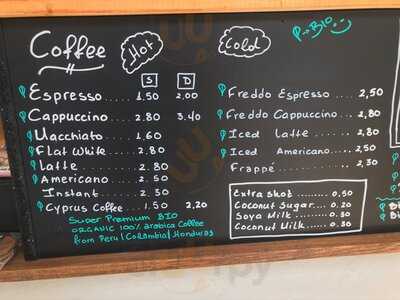 Coffee Hot
S D
Espresso..... 1.50 2.00
Cappuccino..... 2.80 3.40
Macchiato..... 1.60
Flat White..... 2.80
Latte..... 2.80
Americano..... 2.50
Instant..... 2.30
Cyprus Coffee... 1.50 2,20
Super Premium BIO
ORGANIC 100% arabica Coffee
from Peru/Colombia/Honduras
Cold
BIO
Freddo Espresso .... 2,50
Freddo Cappuccino.. 2,80
Iced latte ........ 2,80
Iced Americano..... 2,50
Frappé ............ 2,30
Extra Shot ......... 0,50
Coconut Sugar.... 0,20
Soya Milk......... 0.50
Coconut Milk..... 0.50